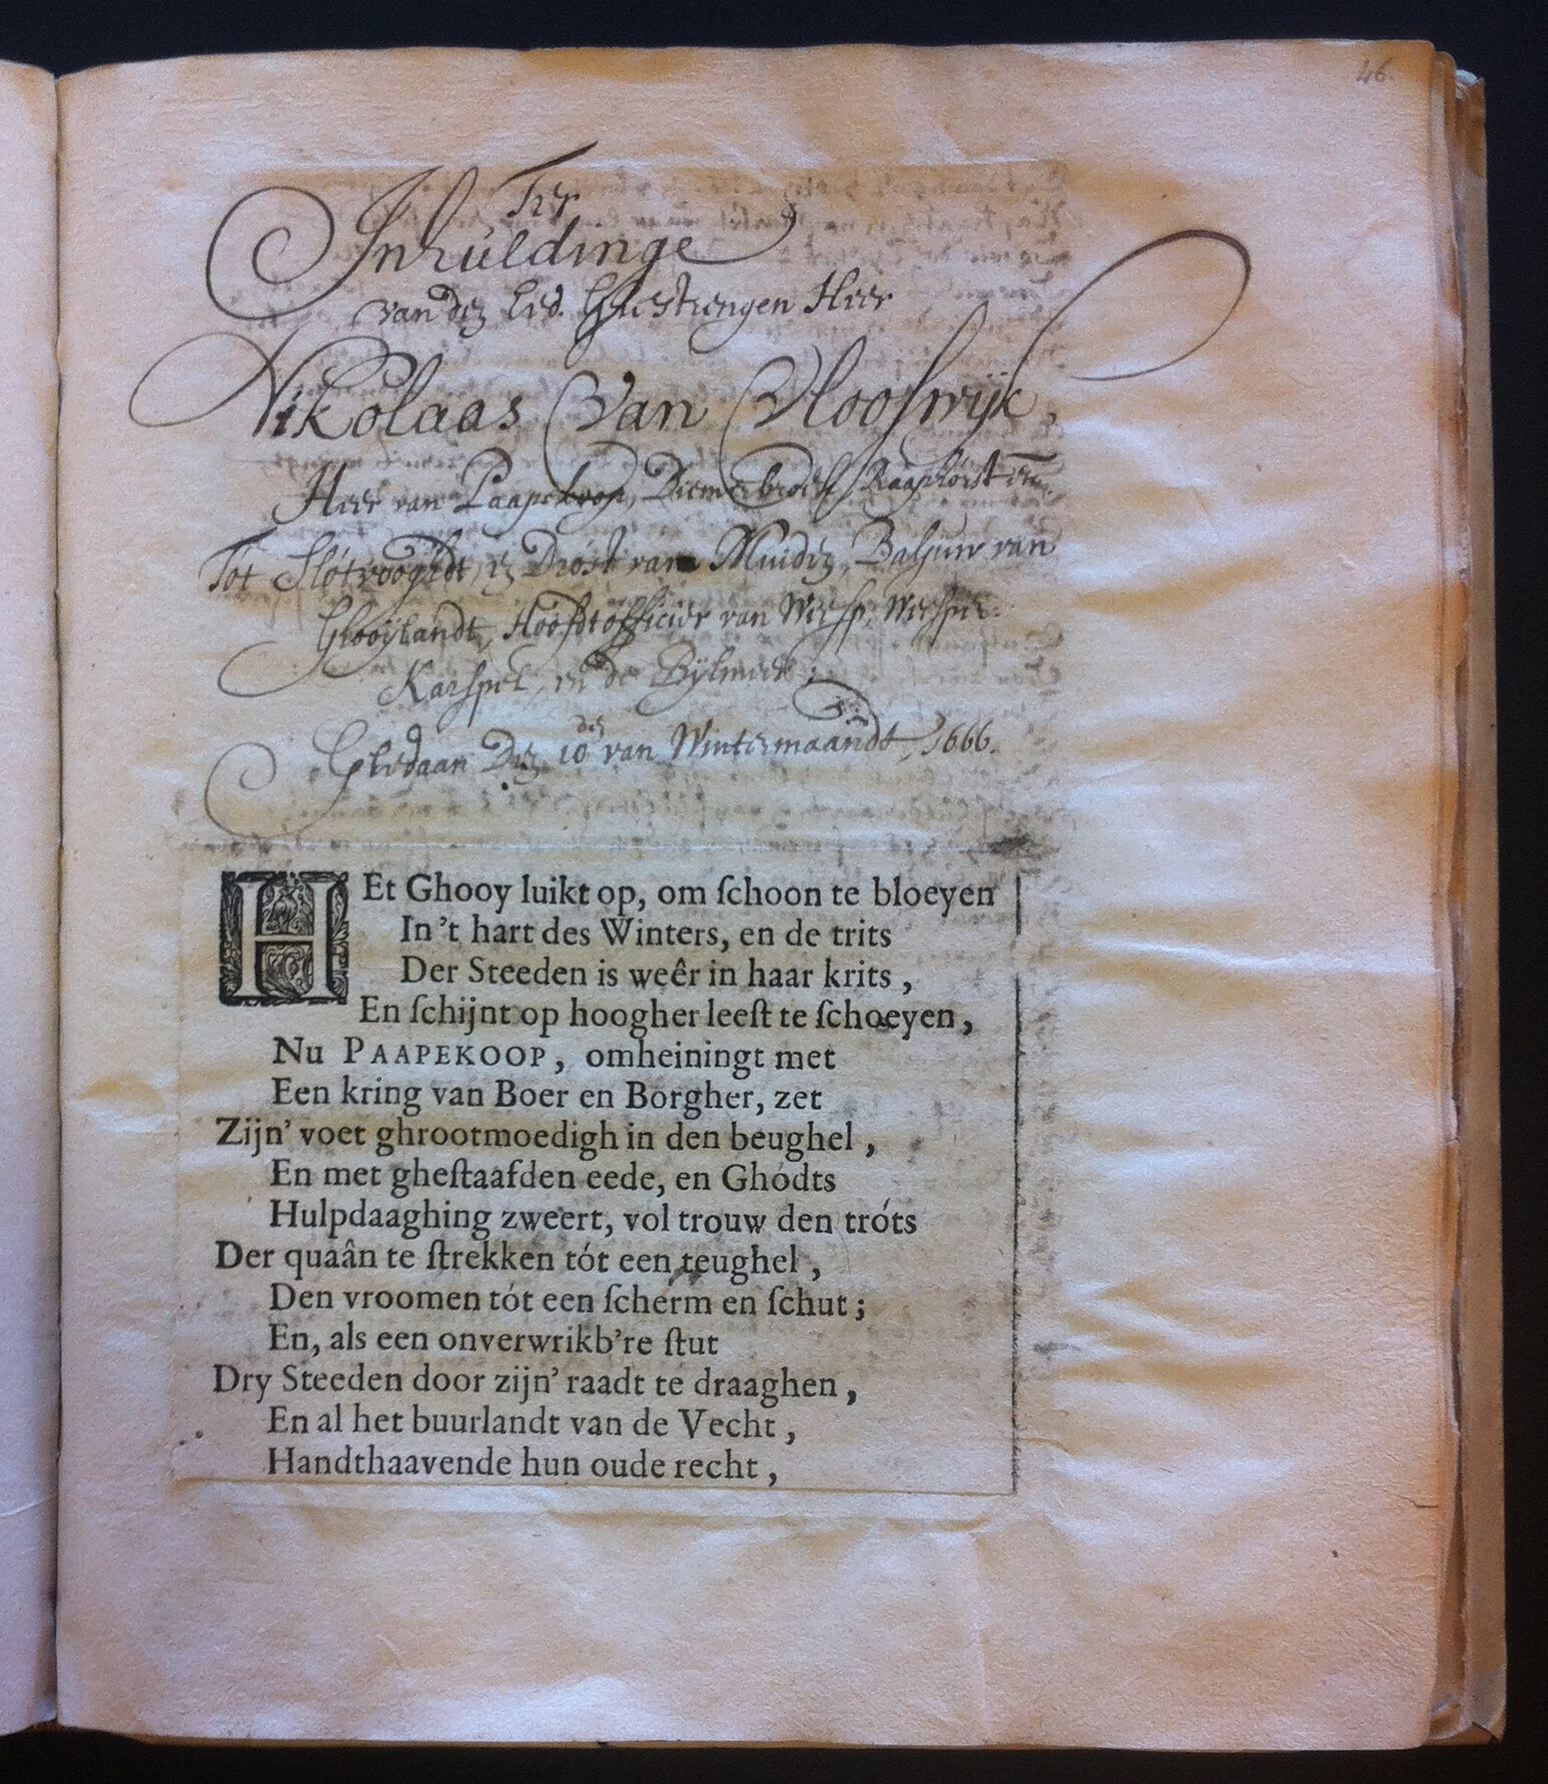 46.
Ter
Inhuldinge
van den Ed. Ghestrengen Heer
Nikolaas Van Vlooswyk,
Heer van Paapekoop, Diemerbroek, Raaphorst en.
Tót Slótvooghdt, en Dróst van Muiden, Baljuw van
Ghooylandt, Hoofdtofficier van Weesp, Weesper-
Karspel, en de Bylmeer;
Ghedaan Den 10den van Wintermaandt, 1666.
HEt Ghooy luikt op, om ſchoon te bloeyen
In 't hart des Winters, en de trits
Der Steeden is weêr in haar krits,
En ſchijnt op hoogher leeſt te ſchoeyen,
Nu PAAPEKOOP, omheiningt met
Een kring van Boer en Borgher, zet
Zijn' voet ghrootmoedigh in den beughel,
En met gheſtaafden eede, en Ghódts
Hulpdaaghing zweert, vol trouw den tróts
Der quaân te ſtrekken tót een teughel,
Den vroomen tót een ſcherm en ſchut;
En, als een onverwrikb're ſtut
Dry Steeden door zijn' raadt te draaghen,
En al het buurlandt van de Vecht,
Handthaavende hun oude recht,